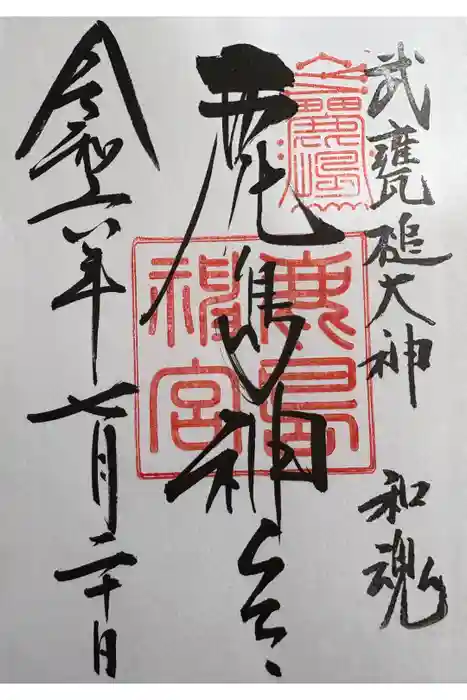 武甕槌大神　和魂
鹿嶋神宮
鹿島神宮
令和六年七月二十日